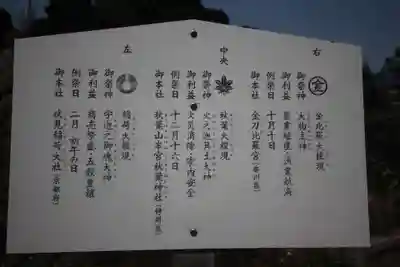 右
金
金比羅大権現
御祭神 大物主神
御利益
例祭日 十月十日
御本社 金刀比羅宮(香川県)
中央
秋葉大権現
御祭神 火之迦具土大神
御利益 火災消除・家内安全
例祭日 十二月十六日
御本社 秋葉山本宮秋葉神社(静岡県)
左
稲荷大権現
御祭神 宇迦之御魂大神
御利益 商売繁盛・五穀豊穣
例祭日 二月 初午の日
御本社 伏見稲荷大社(京都府)